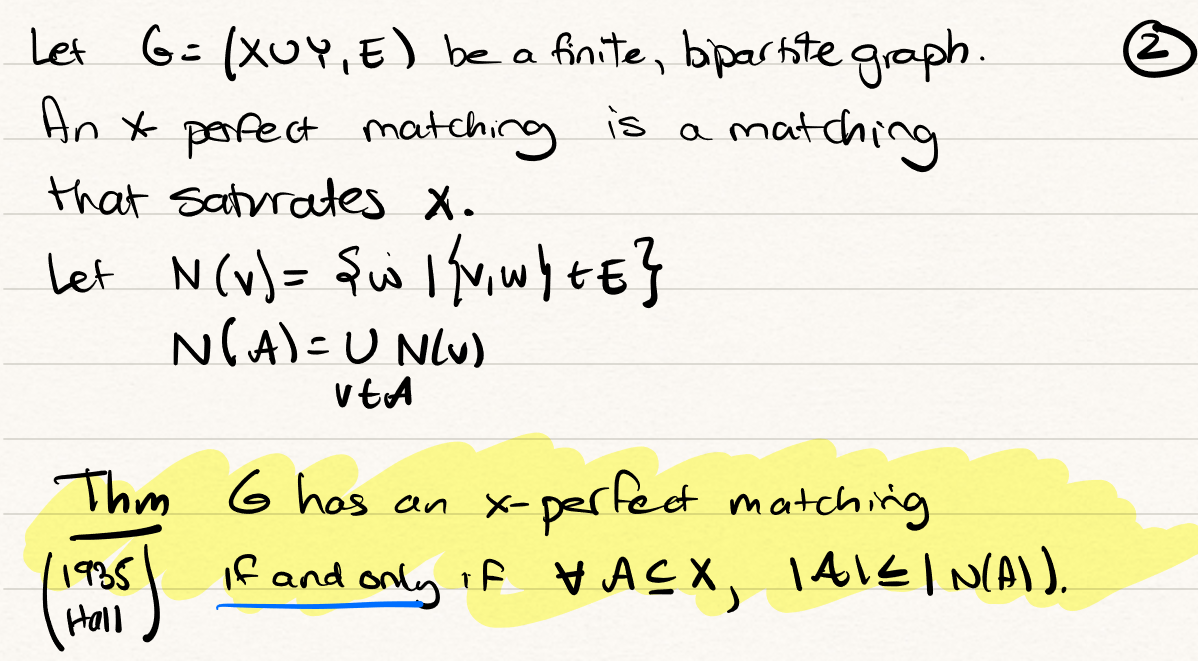 Let G = (X∪Y, E) be a finite, bipartite graph. ②
An X perfect matching is a matching
that saturates X.
Let N(v) = {w | {v,w} ∈ E}
N(A) = ∪ N(v)
v∈A
Thm G has an X-perfect matching
(1935 if and only if ∀ A ⊆ X, |A| ≤ |N(A)|.
Hall)